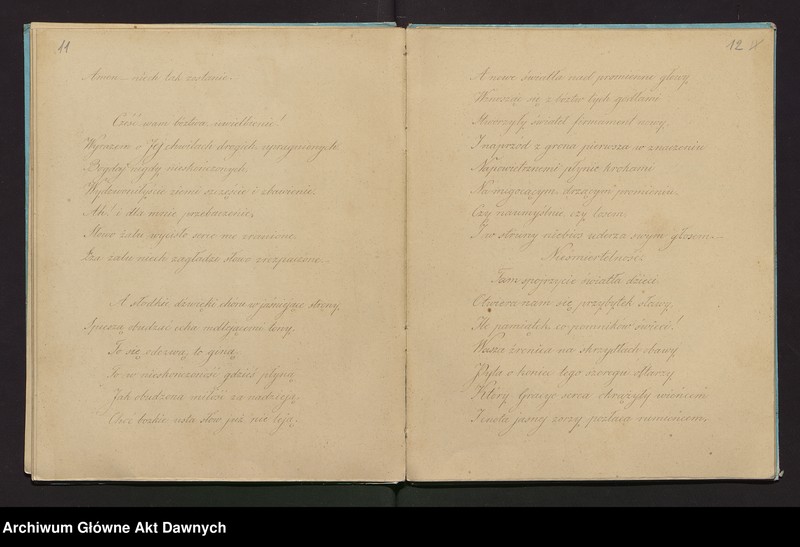 11
Amen – niech tak zostanie.
Cześć wam bóstwa, uwielbienie!
Wyrazem o Jej chwilach drogich, upragnionych
Bogdaj nigdy nieskończonych.
ziemi szczęście i zbawienie.
Ah! i dla mnie przebaczenie,
Słowo żalu wyszło serce me zranione
Łza żalu niech zagładzi słowo
A słodkie dźwięki chóru w jaśniejące strony
Spieszą obudzać echa mdlejącemi tony.
To się odezwą, to giną,
To w nieskończoność gdzieś płyną
Jak obudzona miłość za nadzieją.
Choć boskie usta słów już nie leją.
12
A nowe światła nad promienne głowy
Wznosząc się z bóstw tych godłami
Stworzyły świateł firmament nowy.
I naprzód z grona pierwsza w znaczeniu
Napowietrznemi płynie krokami
Na migocącym, drżącym promieniu.
Czy naumyślnie, czy losem
I w struny niebios uderza swym głosem.
Nieśmiertelność.
Tam spojrzyjcie światła dzieci
Otwiera nam się przybytek sławy,
Ile pamiątek, co pomników świeci!
Wasza źrenica na skrzydłach obawy
Pyta o końce tego szeregu ołtarzy
Który Gracye serca okrążyły wieńcem
I znota jasny zorzy pozłaca rumieńcem.
Archiwum Główne Akt Dawnych